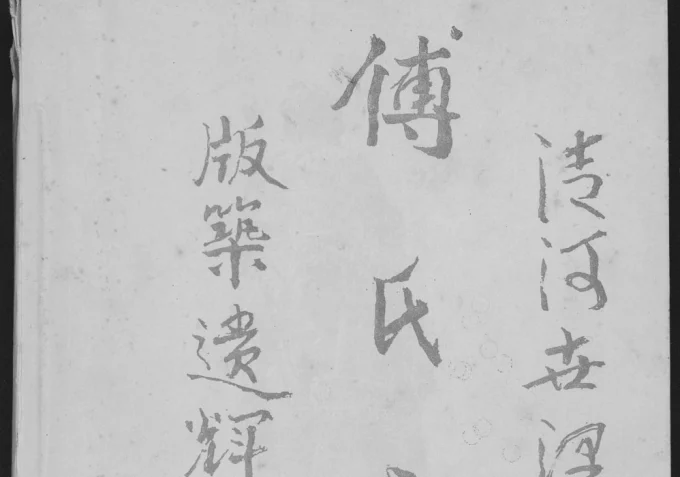 清河世澤
傅氏
版築遺輝